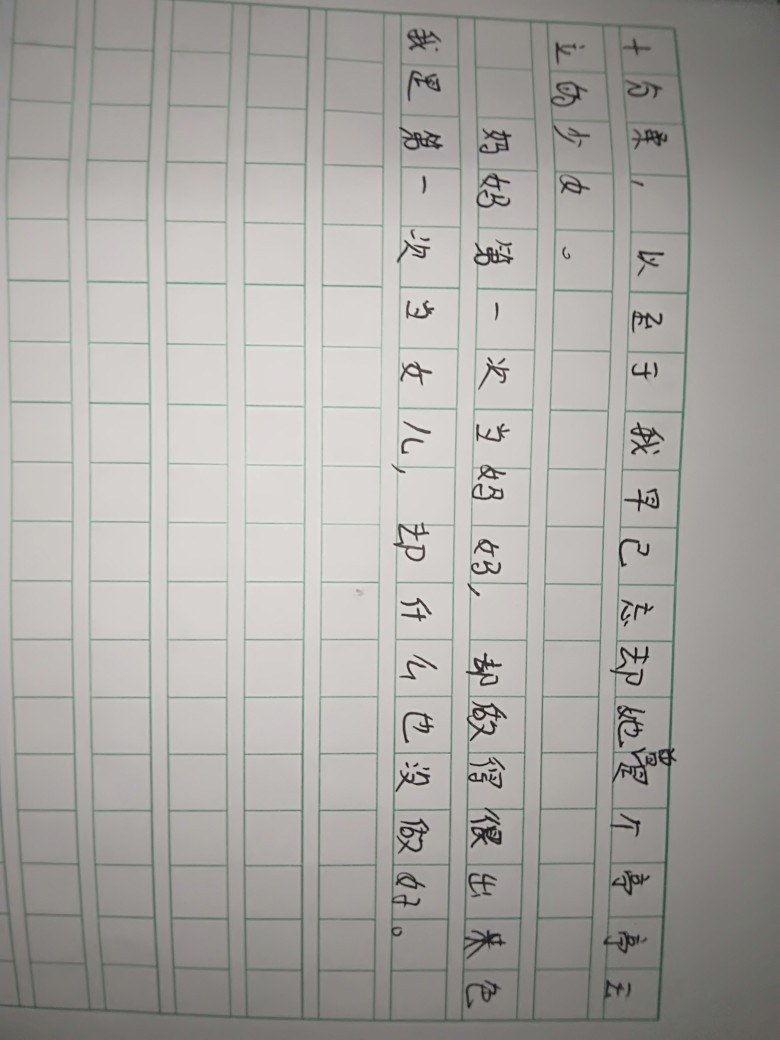 十分,以至于我早已忘却她曾是个亭亭玉
立的少女。
妈妈第一次当妈妈,却做得很出色
我是第一次当女儿,却什么也没做好。